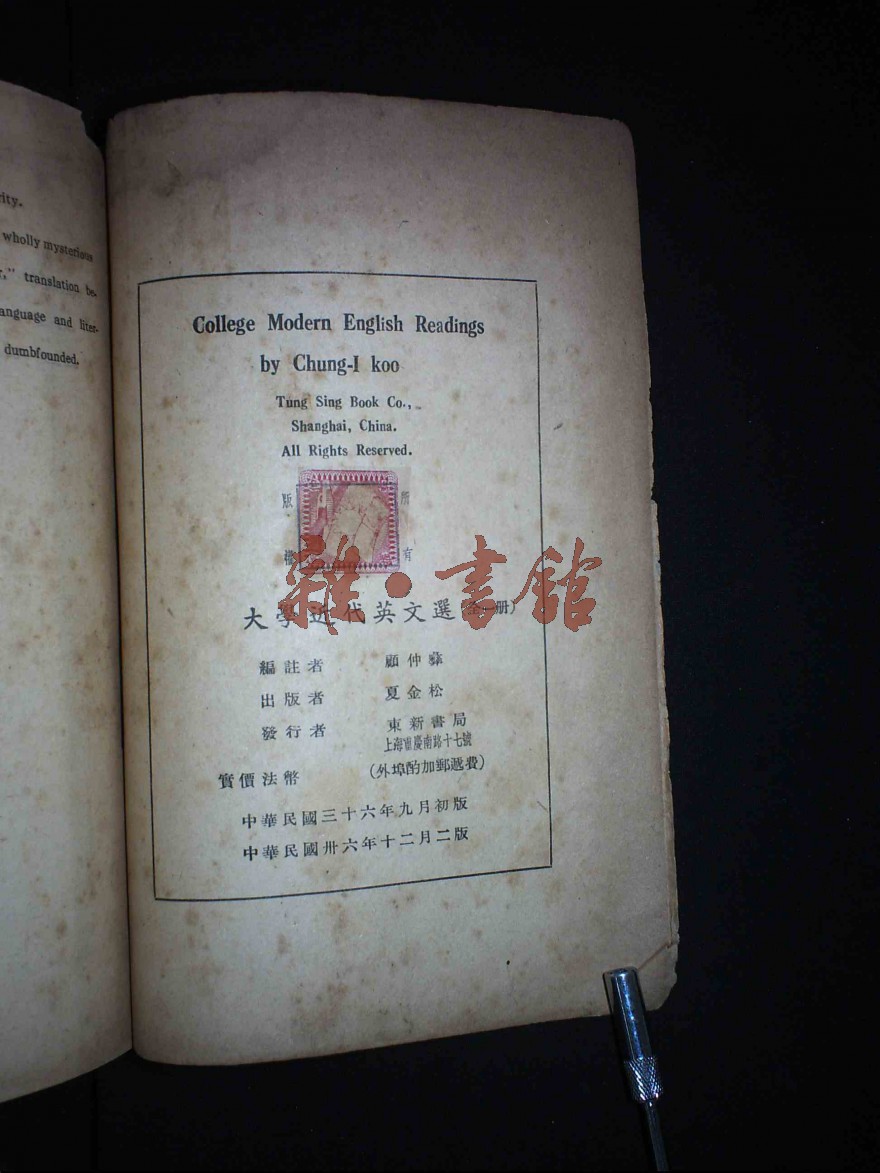 rity.
wholly mysterious
r," translation be-
anguage and liter-
dumbfounded.
College Modern English Readings
by Chung-I koo
Tung Sing Book Co.,
Shanghai, China.
All Rights Reserved.
版 所
權 有
雜·書館
大學近代英文選(全一册)
編註者 顧仲彝
出版者 夏金松
發行者 東新書局
上海重慶南路十七號
實價法幣 (外埠酌加郵遞費)
中華民國三十六年九月初版
中華民國卅六年十二月二版